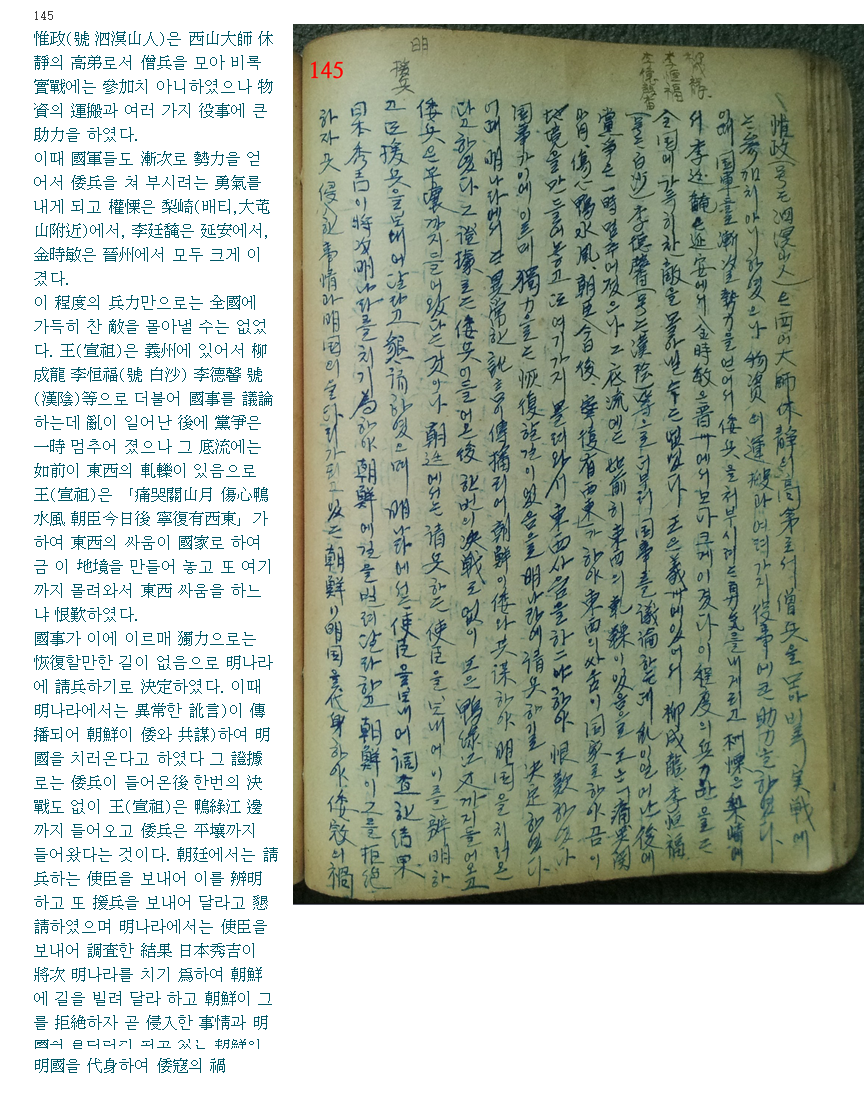 145
惟政(號 泗溟山人)은 西山大師 休
靜의 高弟로서 僧兵을 모아 비록
實戰에는 參加치 아니하였으나 物
資의 運搬과 여러 가지 役事에 큰
助力을 하였다.
이때 國軍들도 漸次로 勢力을 얻
어서 倭兵을 쳐 부시려는 勇氣를
내게 되고 權慄은 梨崎(배티,大芚
山附近)에서, 李廷馣은 延安에서,
金時敏은 晉州에서 모두 크게 이
겼다.
이 程度의 兵力만으로는 全國에
가득히 찬 敵을 몰아낼 수는 없었
다. 王(宣祖)은 義州에 있어서 柳
成龍 李恒福(號 白沙) 李德馨 號
(漢陰)等으로 더불어 國事를 議論
하는데 亂이 일어난 後에 黨爭은
一時 멈추어 졌으나 그 底流에는
如前이 東西의 軋轢이 있음으로
王(宣祖)은 「痛哭關山月 傷心鴨
水風 朝臣今日後 寧復有西東」가
하여 東西의 싸움이 國家로 하여
금 이 地境을 만들어 놓고 또 여기
까지 몰려와서 東西 싸움을 하느
냐 恨歎하였다.
國事가 이에 이르매 獨力으로는
恢復할만한 길이 없음으로 明나라
에 請兵하기로 決定하였다. 이때
明나라에서는 異常한 訛言)이 傳
播되어 朝鮮이 倭와 共謀)하여 明
國을 치러온다고 하였다 그 證據
로는 倭兵이 들어온後 한번의 決
戰도 없이 王(宣祖)은 鴨綠江 邊
까지 들어오고 倭兵은 平壤까지
들어왔다는 것이다. 朝廷에서는 請
兵하는 使臣을 보내어 이를 辨明
하고 또 援兵을 보내어 달라고 懇
請하였으며 明나라에서는 使臣을
보내어 調査한 結果 日本秀吉이
將次 明나라를 치기 爲하여 朝鮮
에 길을 빌려 달라 하고 朝鮮이 그
를 拒絶하자 곧 侵入한 事情과 明
國의 울타리가 되고 있는 朝鮮이
明國을 代身하여 倭寇의 禍
145
李恒福
明
援兵
(惟政 号는 泗溟山人)은 西山大師 休静의 高弟로서 僧兵을 모아 비록 実戦에
는 参加치 아니하였으나 物資의 運搬과 여러가지 役事에 큰 助力을 하였다.
이때 国軍들도 漸次로 勢力을 얻어서 倭兵을 처부시려는 勇気를 내게되고 権慄은 梨崎에
서 李廷馣은 延安에서 金時敏은 晋州에서 모다 크게 이겼다 이 程度의 兵力만으로는
全国에 가득히 찬 敵을 몰아낼수는 없었다 王은 義州에 있어서 柳成龍 李恒福
(号는 白沙) 李德馨(号는 漢陰)等으로 더부러 国事를 議論하는데 乱이 일어난 後에
党争은 一時 멈추어졌으나 그 底流에는 如前히 東西의 軋轢이 있음으로 王은「痛哭関
山月、傷心鴨水風、朝臣今日後、寧復有西東」가 하야 東西의 싸움이 国家로 하야금 이
地境을 만들어놓고 또 여기까지 몰려와서 東西싸움을 하느냐 하야 恨歎하였다
国事가 이에 이르매 獨力으로는 恢復할 길이 없음으로 明나라에 請兵하기로 決定하였다.
이때 明나라에서는 異常한 訛言이 傳播되어 朝鮮이 倭와 共謀하야 明国을 치러온
다고 하였다 그 證據로는 倭兵이 들어온後 한번의 決戦도 없이 王은 鴨綠江까지 들어오고
倭兵은 平壤까지 들어왔다는 것이다 朝廷에서는 請兵하는 使臣을 보내어 이를 辨明하
고 또 援兵을 보내어 달라고 懇請하였으며 明나라에선 使臣을 보내어 調査한 結果
日本秀吉이 將次 明나라를 치기 爲하야 朝鮮에 길을 빌려 달라 하고 朝鮮이 그를 拒絶
하자 곧 侵入한 事情과 明国의 울타리가 되고 있는 朝鮮이 明国을 代身하야 倭寇의 禍